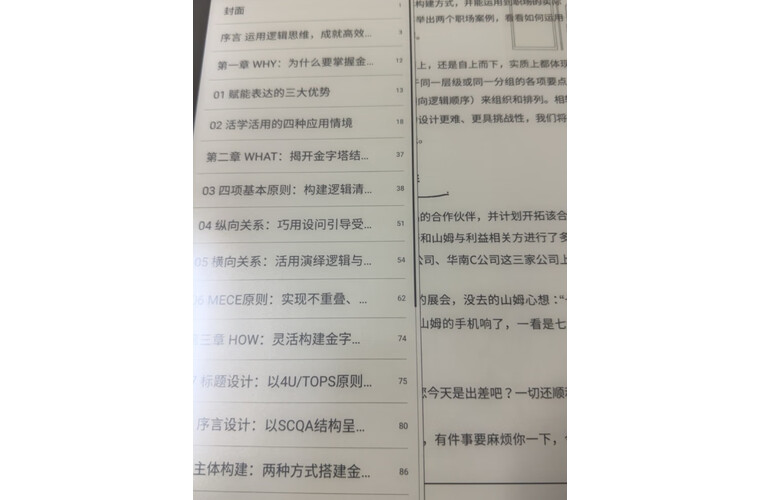 封面 1
序言 运用逻辑思维，成就高效... 3
第一章 WHY：为什么要掌握金... 12
01 赋能表达的三大优势 13
02 活学活用的四种应用情境 18
第二章 WHAT：揭开金字塔结... 37
03 四项基本原则：构建逻辑清... 38
04 纵向关系：巧用设问引导受... 51
05 横向关系：活用演绎逻辑与... 54
6 MECE原则：实现不重叠、... 62
三章 HOW：灵活构建金字... 74
标题设计：以4U/TOPS原则... 75
序言设计：以SCQA结构呈... 80
主体构建：两种方式搭建金... 86
构建方式，并能运用到职场的实际
举出两个职场案例，看看如何运用
上，还是自上而下，实质上都体现
同一层级或同一分组的各项要点
向逻辑顺序）来组织和排列。相
设计更难、更具挑战性，我们将
。
的合作伙伴，并计划开拓该合
和山姆与利益相关方进行了多
公司、华南C公司这三家公司上
的展会，没去的山姆心想：“
山姆的手机响了，一看是七
您今天是出差吧？一切还顺
，有件事要麻烦你一下，